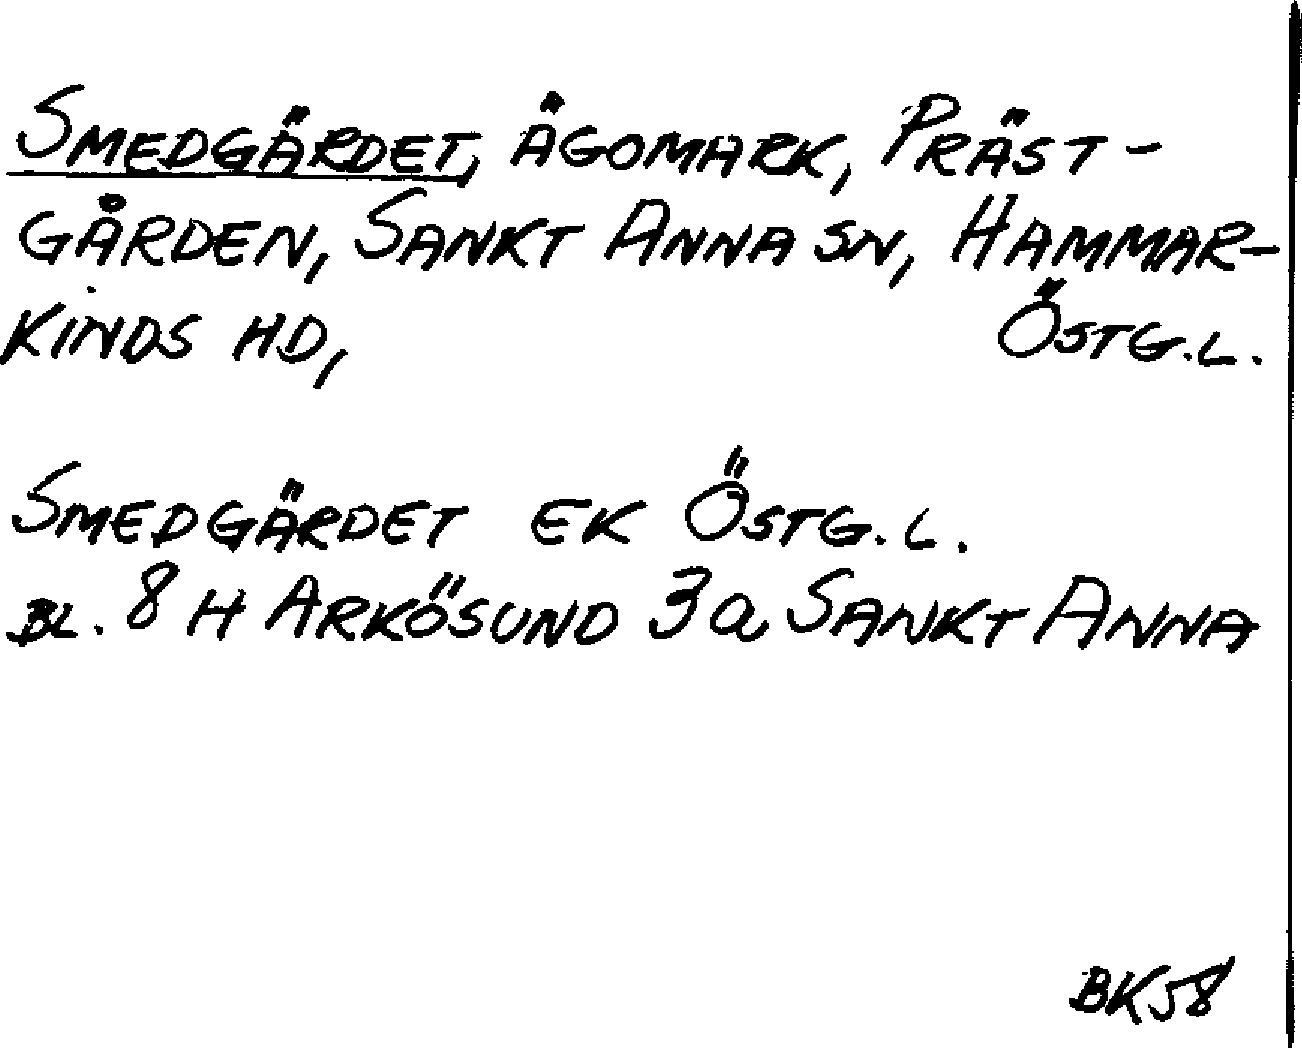 SMEDGÄRDET, ÄGOMARK, PRÄST-
GÅRDEN, SANKT ANNA SN, HAMMAR-
KINDS HD, ÖSTG.L.
SMEDGÄRDET EK ÖSTG.L.
BL. 8 H ARKÖSUND 3a SANKT ANNA
BK58